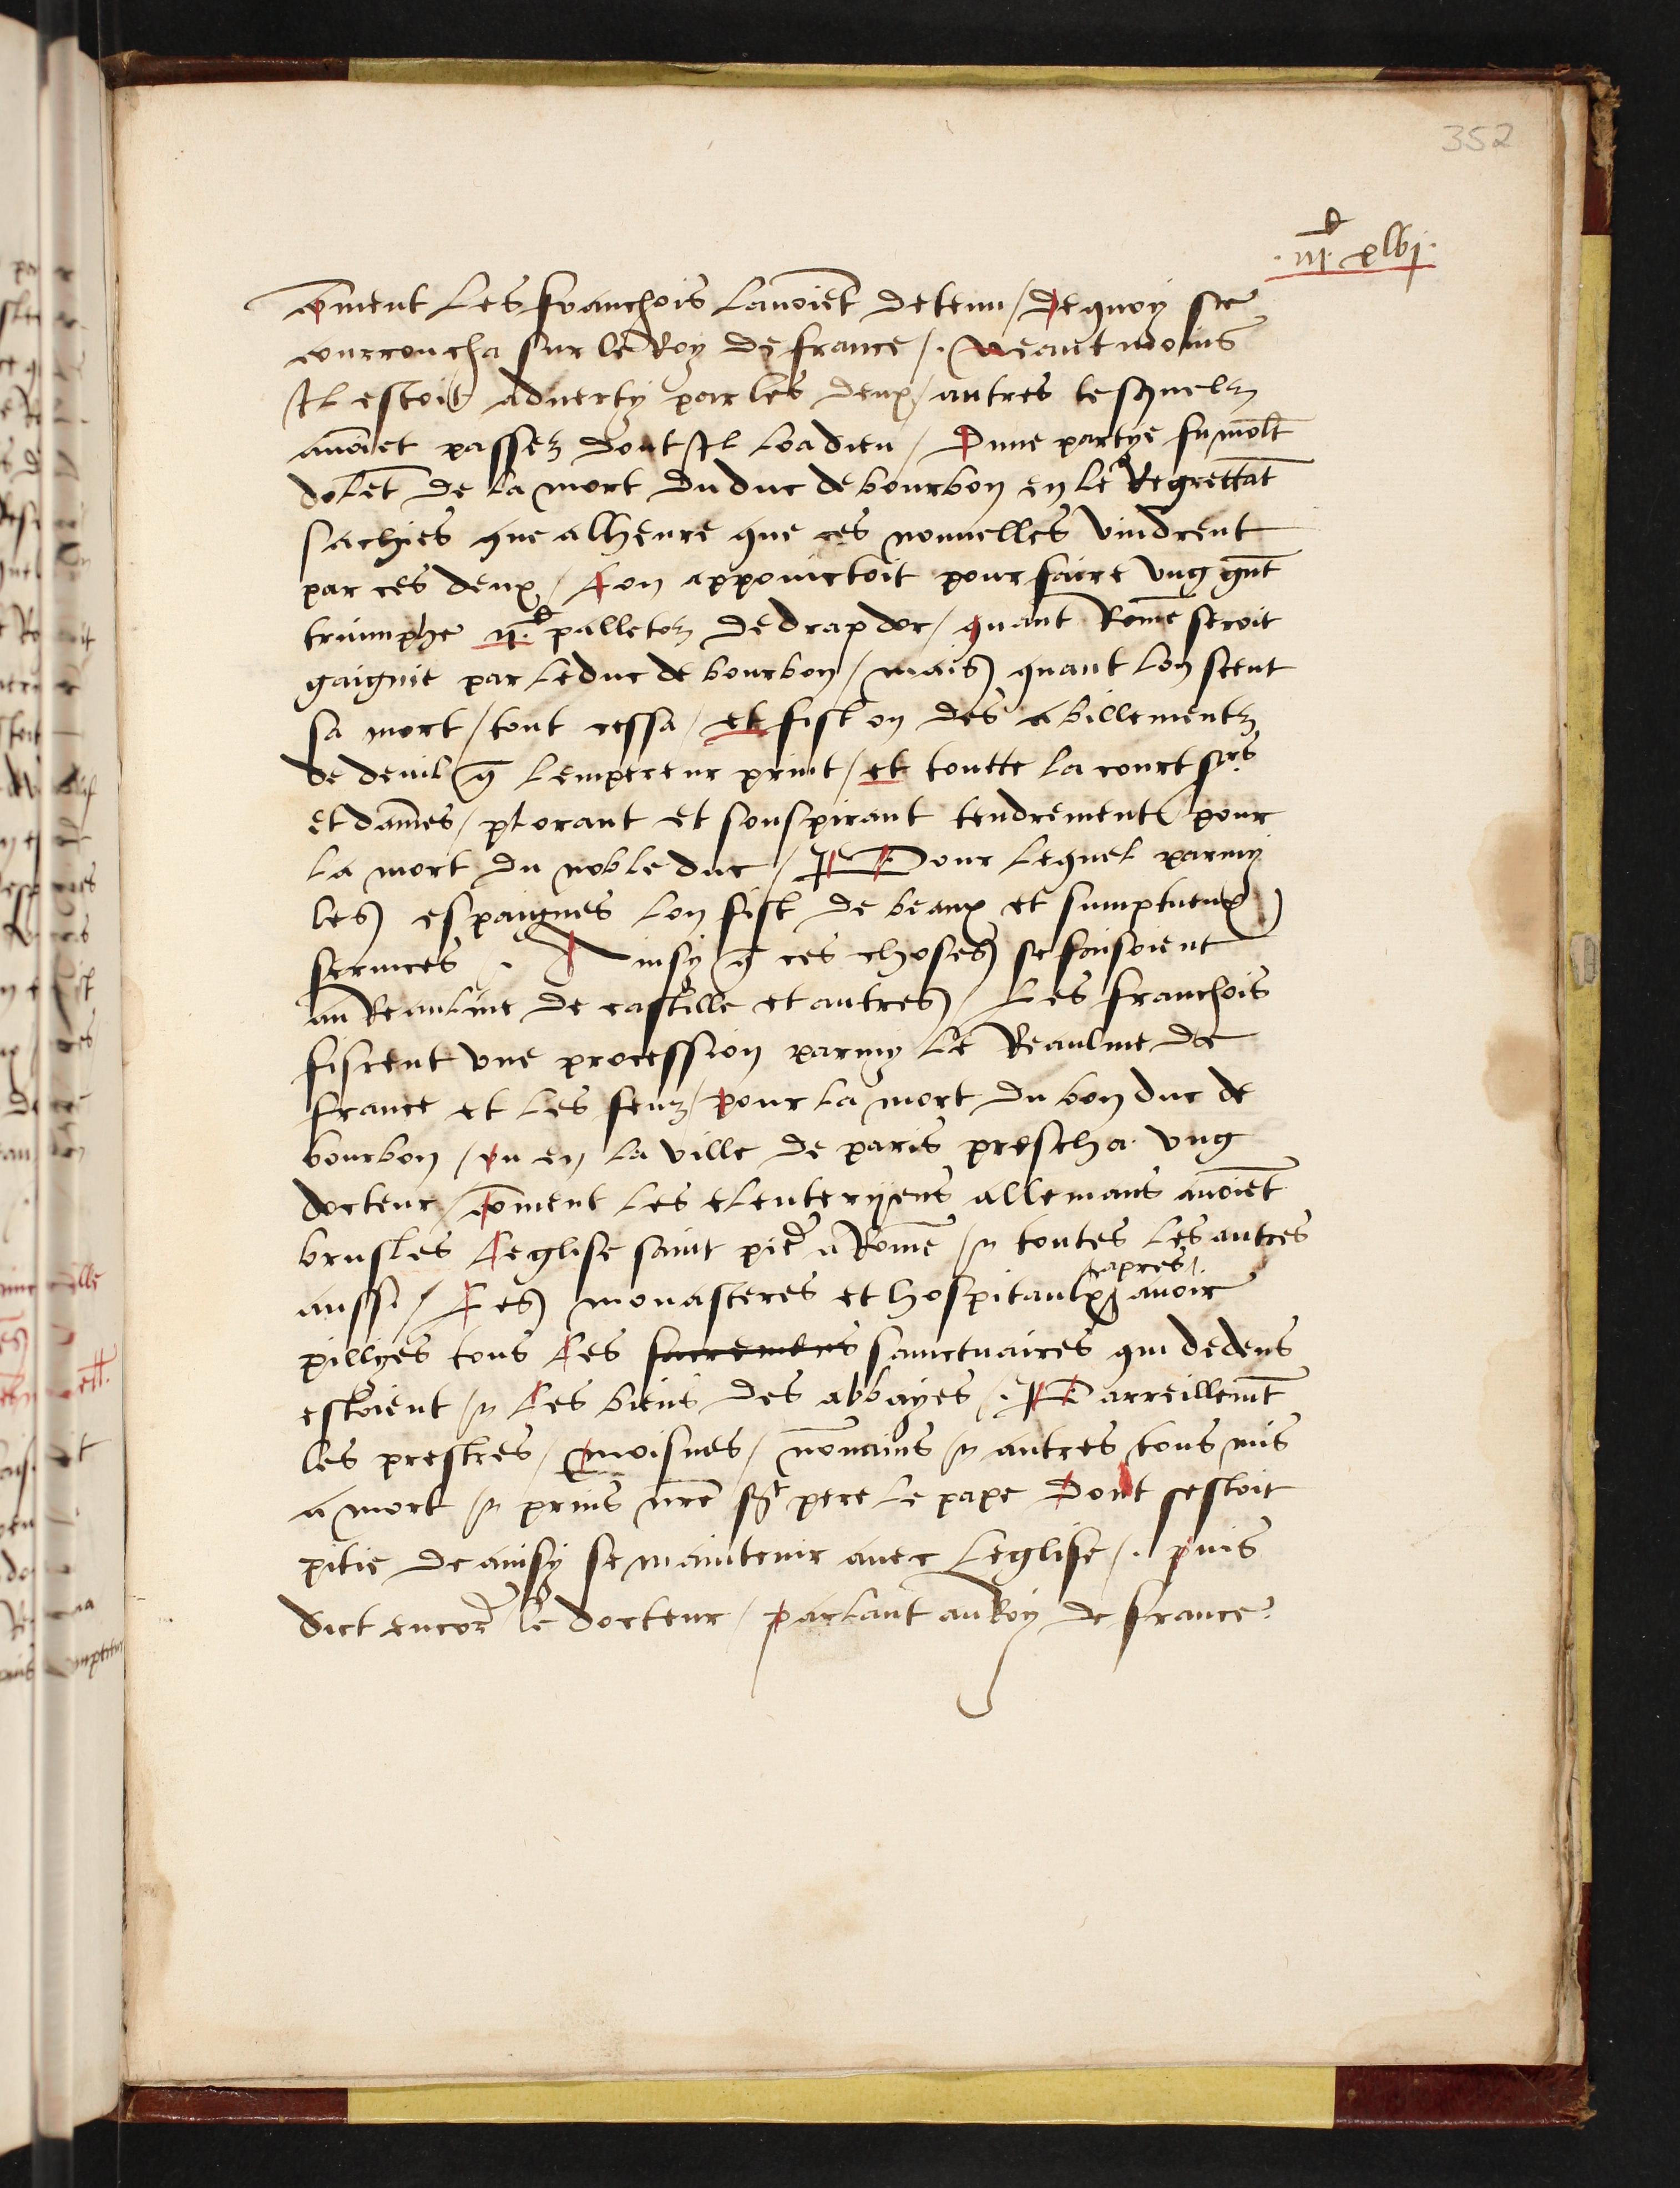 352
.iij.c xlvj.
com̄ent les franchois lavoiēt detenu / de quoy se
courroucha sur le Roy de france /. Neantmoins
Il estoit adverty par les deux / autres lesquelz
avoiēt passez dont Il loa dieu / Dune partye fu molt
dolēt de la mort du duc de bourbon en le Regrettāt
sachies que a lheure que ces nouvelles vindrent
par ces deux / Lon appoinctoit pour faire ung gnt
triumphe ij.c palletoz de drap dor / quant Rome seroit
gaignie par le duc de bourbon / mais quant lon sceut
sa mort / tout cessa / et fist on des abillementz
de deuil q̄ lempereur print / et toutte la court srs
et dames / plorant et souspirant tendrement pour
la mort du noble duc / Pour lequel parmy
les espaignes lon fist de beaux et sumptueux
services . Ainsy q̄ ces choses se faisoient
au Reaulme de castille et autres / Les franchois
fisrent une procession parmy le Reaulme de
france et les feuz / pour la mort du bon duc de
bourbon / ou en la ville de paris prescha ung
docteur / com̄ent les eleuteryens allemans avoiēt
brusles Leglise saint pier̄ a Rome / et toutes les autres
aussi / Les monasteres et hospitaulx apres avoir
pillyes tous Les sacremens sanctuaires qui dedens
estoient / et Les biens des abbayes /. Parreillemt
les prestres / moisnes / nonnains / et autres tous mis
a mort / et prins nr̄e st pere le pape Dont cestoit
pitie de ainsy se maintenir avec Leglise /. puis
dict encor̄ le docteur / parlant au Roy de france.